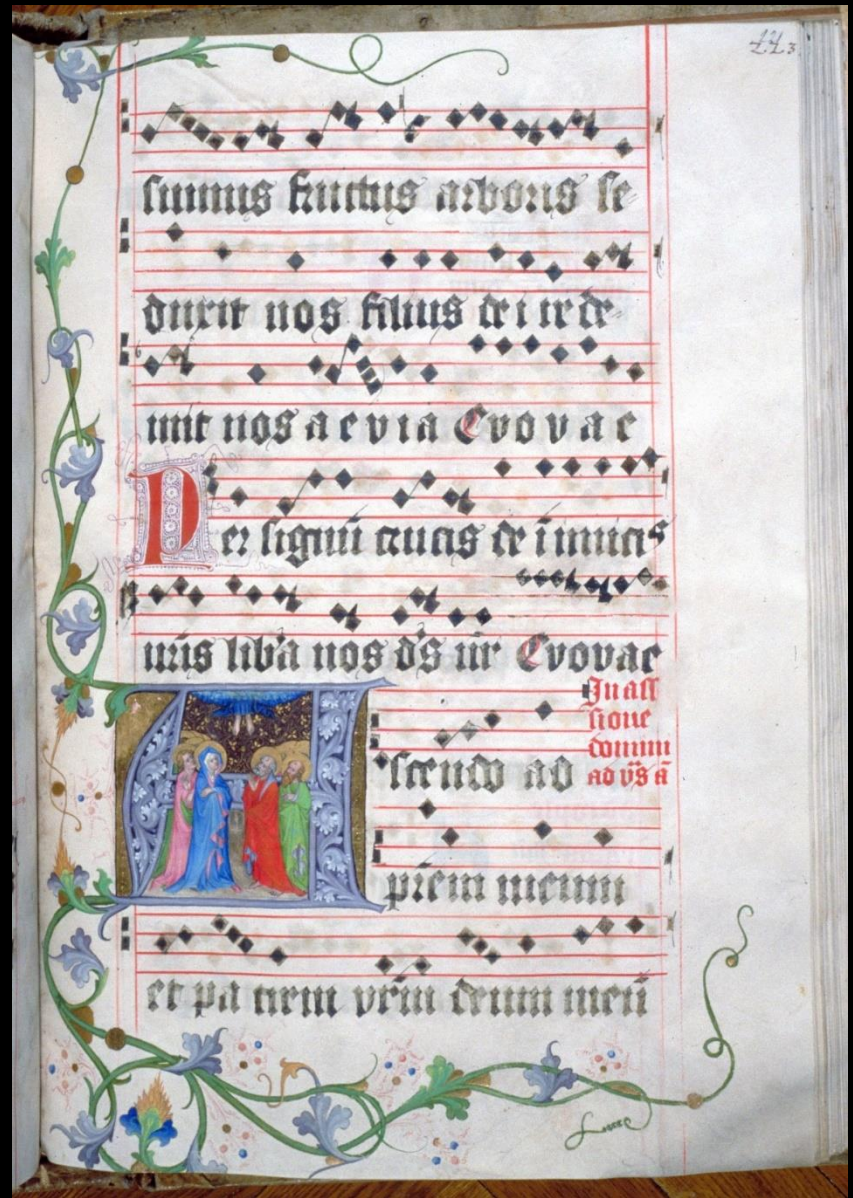 sumus fructus arboris se-
duxit nos filius dei rede-
mit nos a e v i a Evovae
Per signū crucis de inimicis
nr̄is lib'a nos d's nr̄ Evovae
In ass
sione
domini
ad vs̄ ā
Ascendo ad
pr̄em meum
et patrem vr̄m deum meū